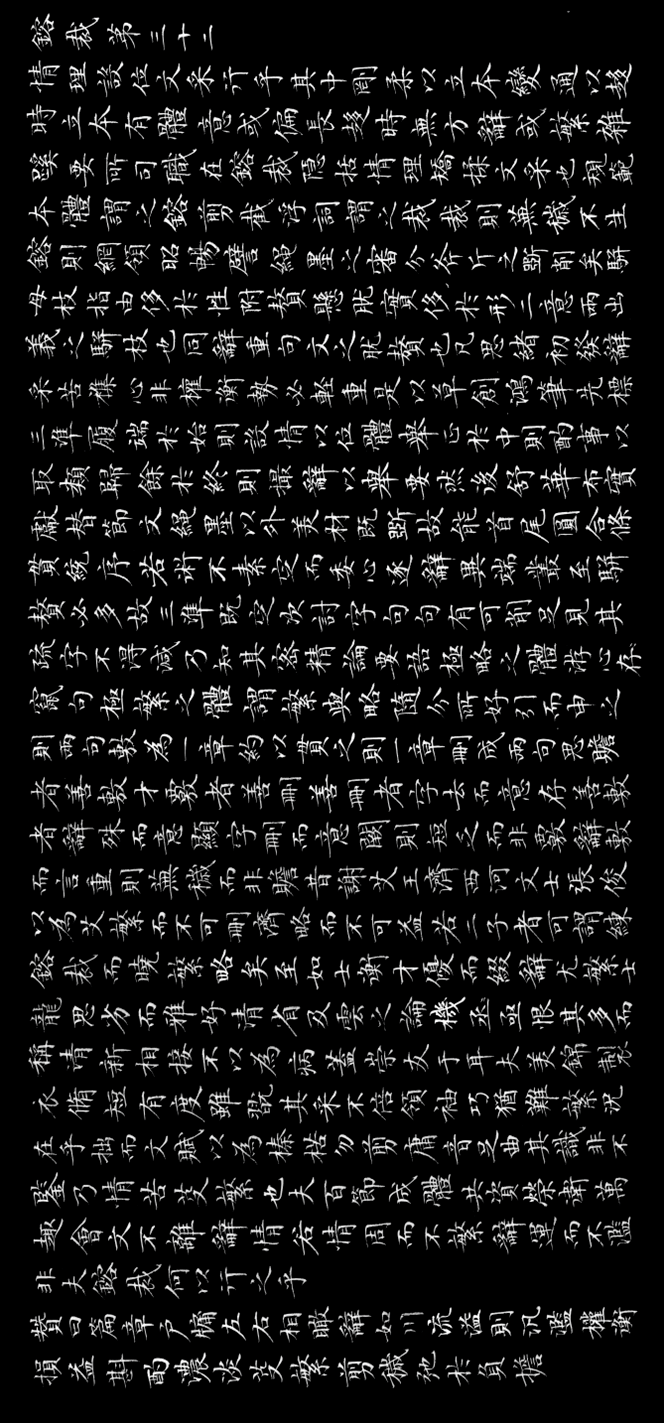 鎔裁第三十二
情理設位文采行乎其中剛柔以立本變通以趍
時立本有體意或偏長趍時無方辭或繁雜
蹊要所司職在鎔裁隱括情理矯揉文采也規範
本體謂之鎔剪截浮詞謂之裁裁則蕪穢不生
鎔則綱領昭暢譬繩墨之審分斧斤之斲削矣駢
母枝指由侈於性附贅懸肬實侈於形二意兩出
義之駢枝也同辭重句文之肬贅也凡思緒初發辭
采苦雜心非權衡勢必輕重是以草創鴻筆先標
三準履端於始則設情以位體舉正於中則酌事以
取類歸餘於終則撮辭以舉要然後舒華布實
獻替節文繩墨以外美材既斲故能首尾圓合條
貫統序若術不素定而委心逐辭異端叢至駢
贅必多故三準既定次討字句句有可削足見其
疏字不得減乃知其密精論要語極略之體游心存
竄句極繁之體謂繁與略隨分所好引而申之
則兩句敷為一章約以貫之則一章刪成兩句思贍
者善敷才覈者善刪善刪者字去而意存善敷
者辭殊而意顯字刪而意闕則短乏而非覈辭敷
而言重則蕪穢而非贍昔謝艾王濟西河文士張俊
以為艾繁而不可刪濟略而不可益若二子者可謂練
鎔裁而曉繁略矣至如士衡才優而綴辭尤繁士
龍思劣而雅好清省及雲之論機丞亟恨其多而
稱清新相接不以為病蓋崇友于耳夫美錦製
衣脩短有度雖翫其采不倍領袖巧猶難繁況
在乎拙而文賦以為榛楛勿剪庸音足曲其識非不
鑒乃情苦芟繁也夫百節成體共資榮衛萬
趣會文不離辭情若情周而不繁辭運而不濫
非夫鎔裁何以行之乎
贊曰篇章戶牖左右相瞰辭如川流溢則汎濫權衡
損益斟酌濃淡芟繁剪穢弛於負擔